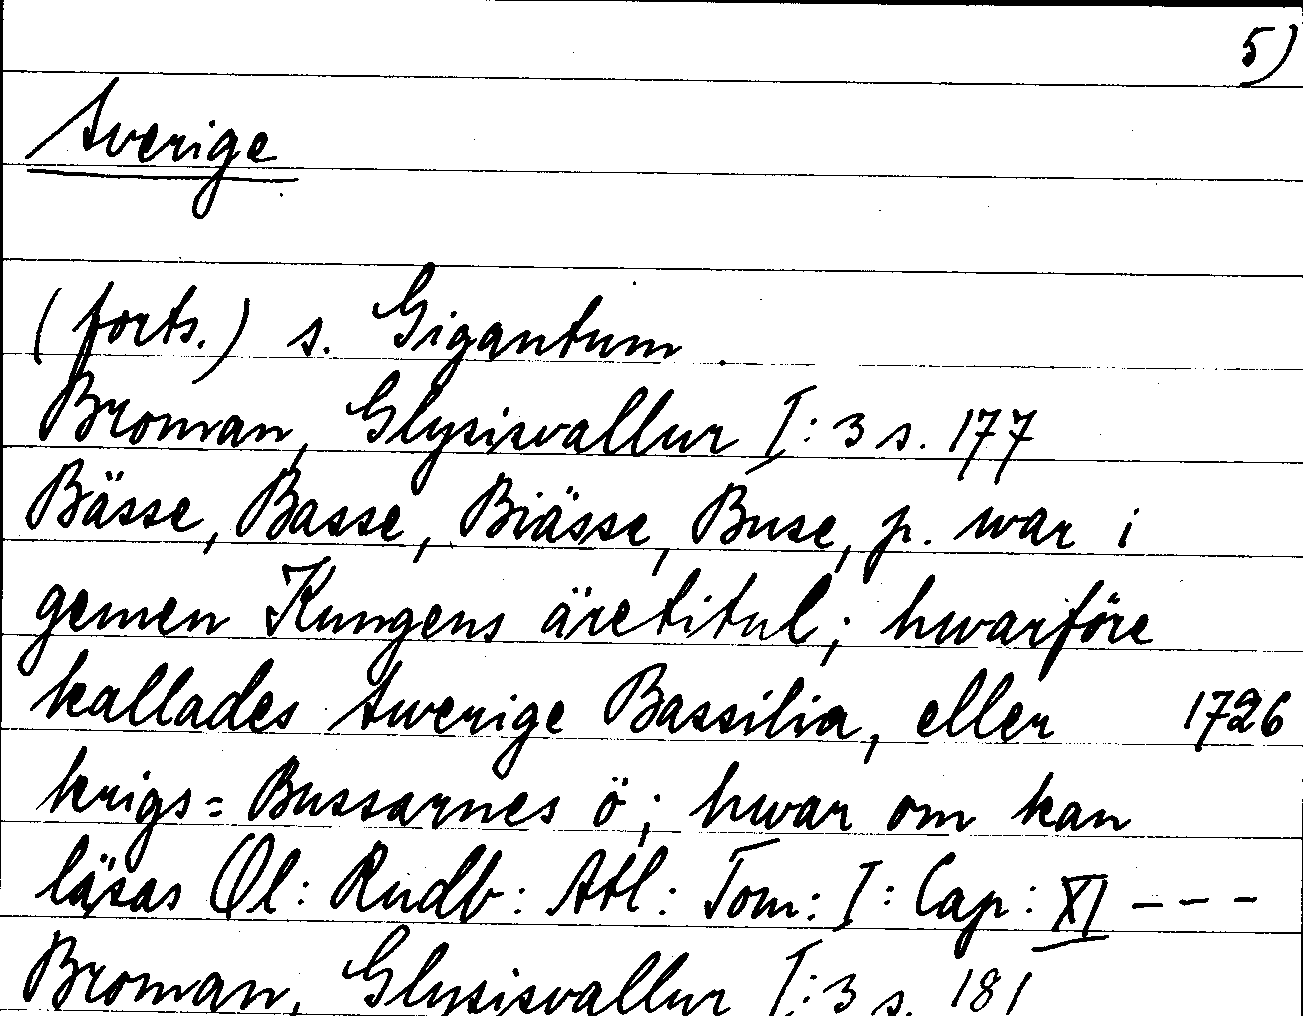 5)
Sverige
(forts.) s. Gigantum.
Broman, Glysisvallur I: 3 s. 177
Bässe, Basse, Biässe, Buse, p. war i
gemen Kungens äretitul; hwarföre
kallades Swerige Bassilia, eller 1726
krigs=Bussarnes ö; hwar om kan
läsas Ol: Rudb: Atl: Tom: I: Cap: XI - - -
Broman, Glysisvallur I: 3 s. 181